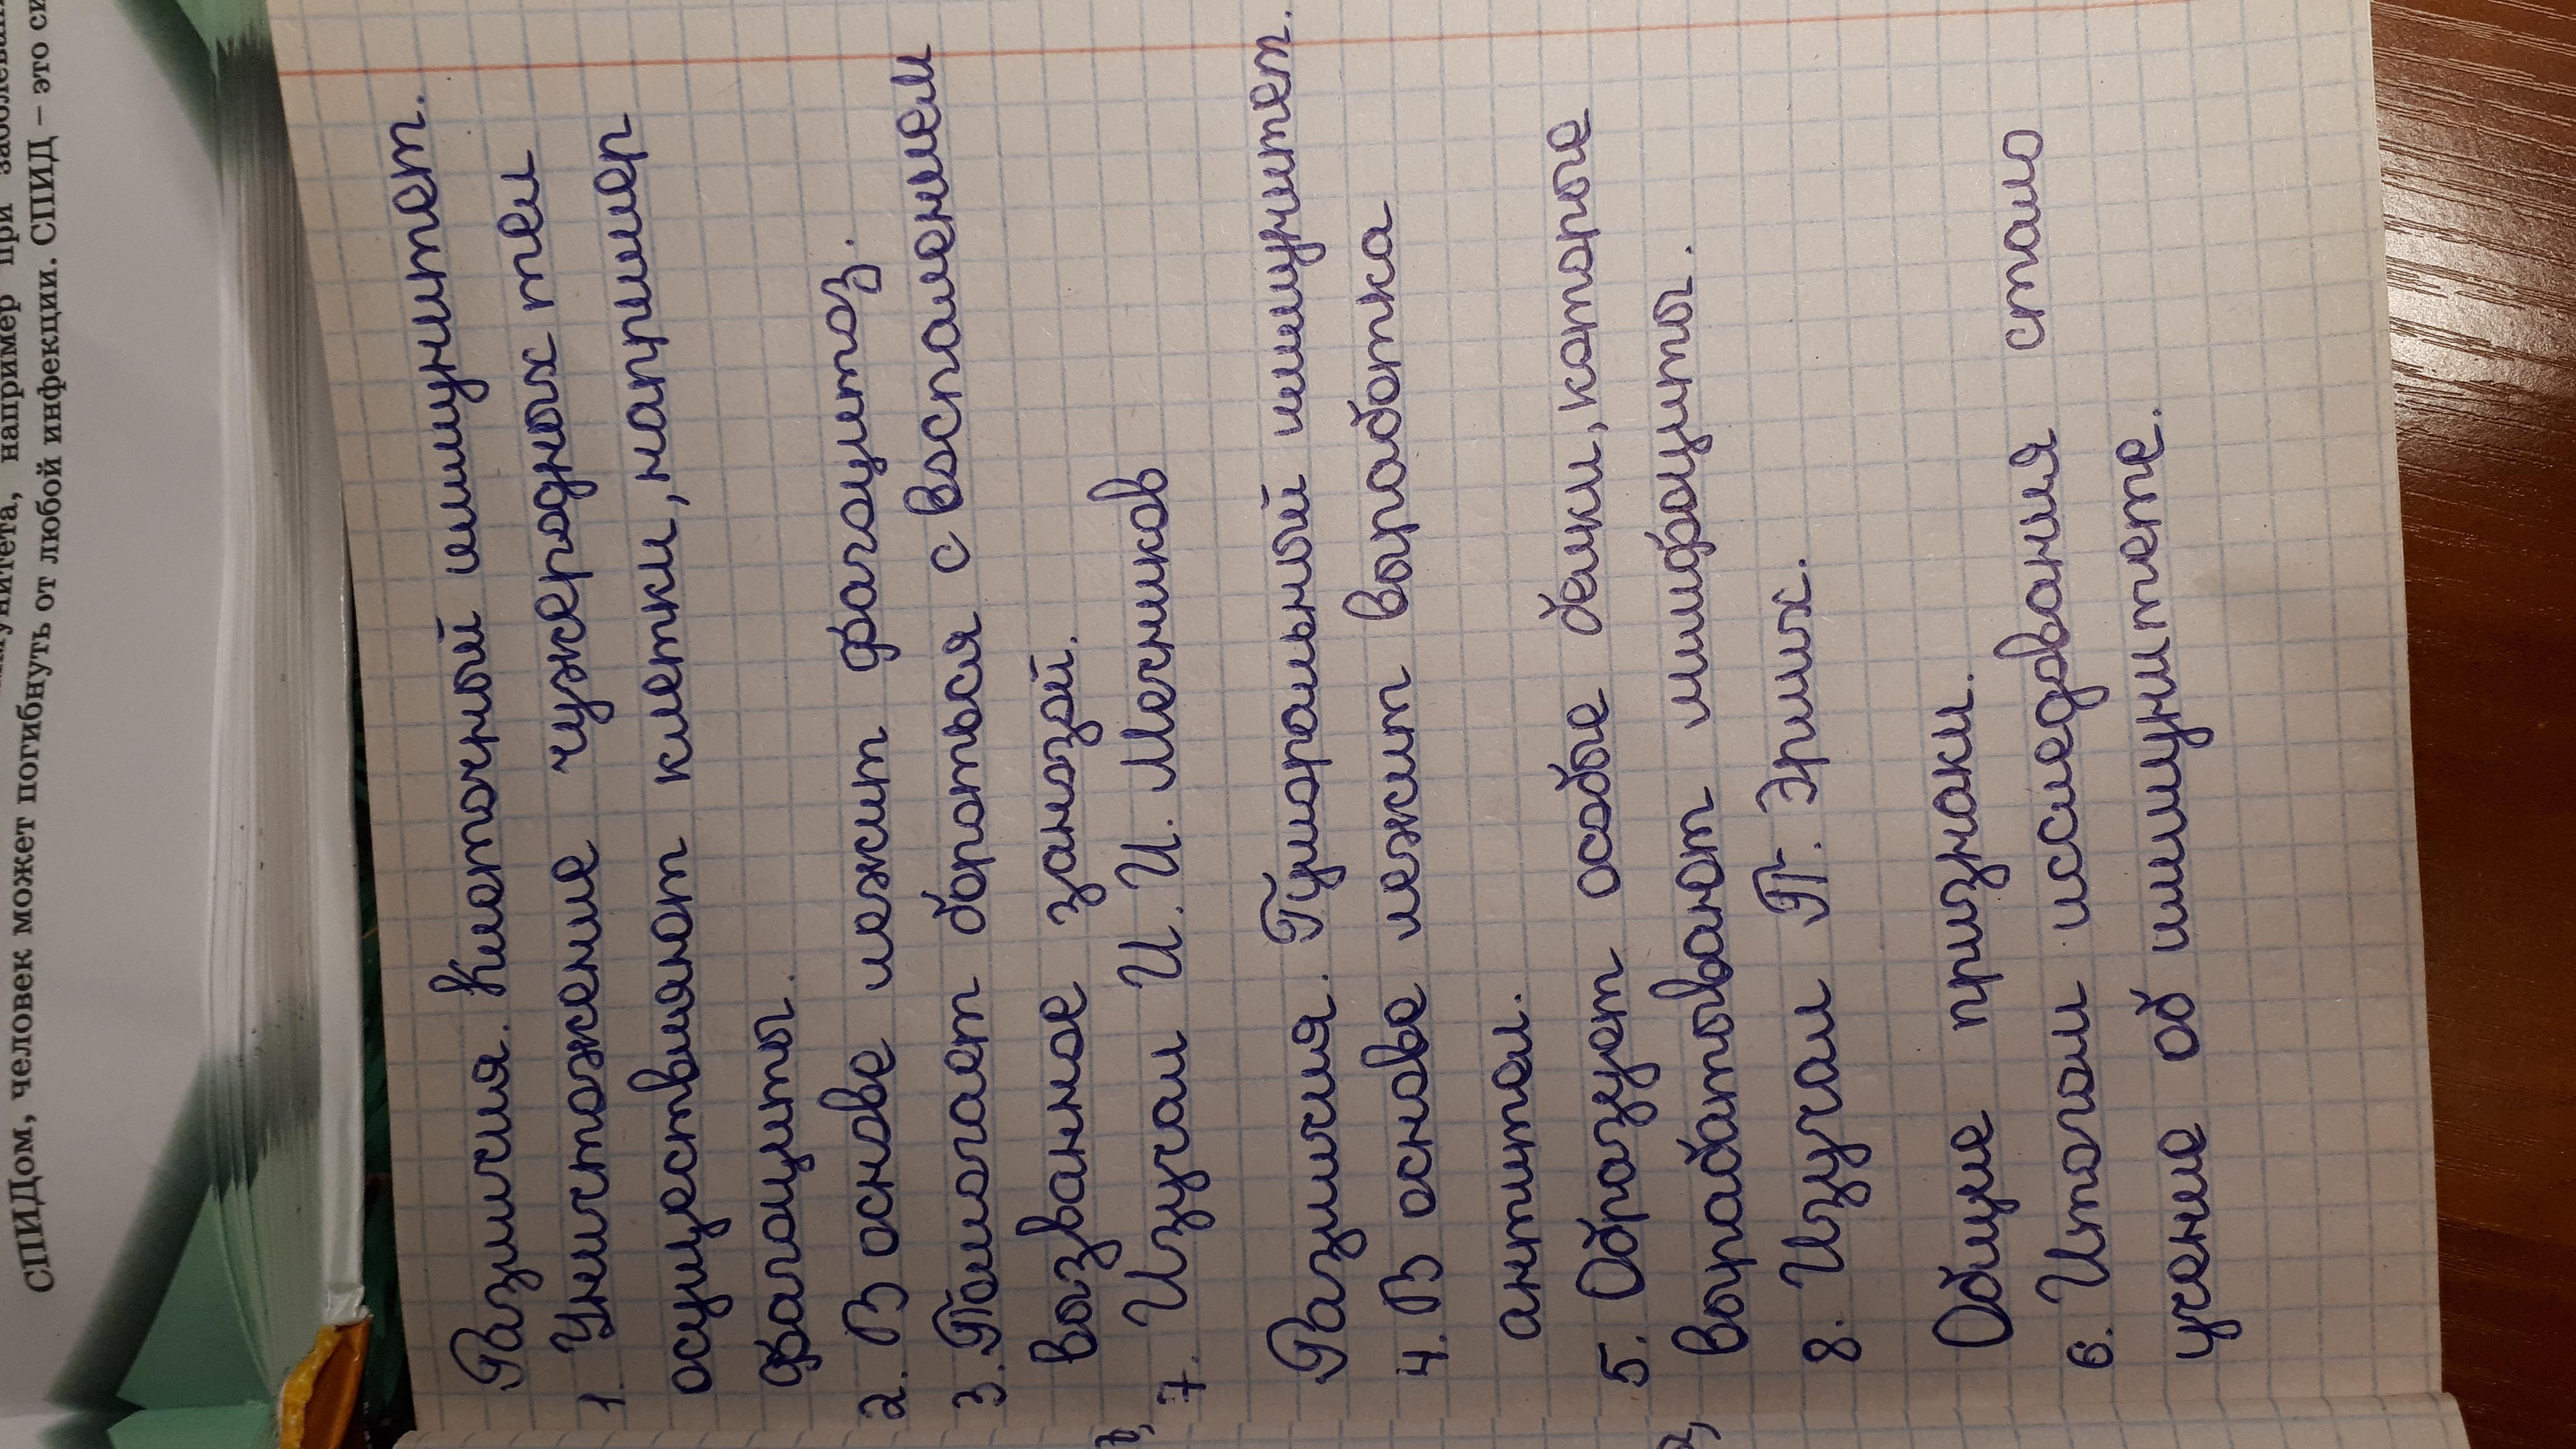 унитета, например при заболеван
СПИДом, человек может погибнуть от любой инфекции. СПИД – это си
Различия. Клеточный иммунитет.
1. Уничтожение чужеродных тел
осуществляют клетки, например
фагоциты.
2. В основе лежит фагоцитоз.
3. Помогает бороться с воспалением
вызванное занозой.
7. Изучал И. И. Мечников
Различия. Гуморальный иммунитет.
4. В основе лежит выработка
антител.
5. Образует особые белки, которые
вырабатывают лимфоциты.
8. Изучал П. Эрлих.
Общие признаки.
6. Итогом исследования стало
учение об иммунитете.